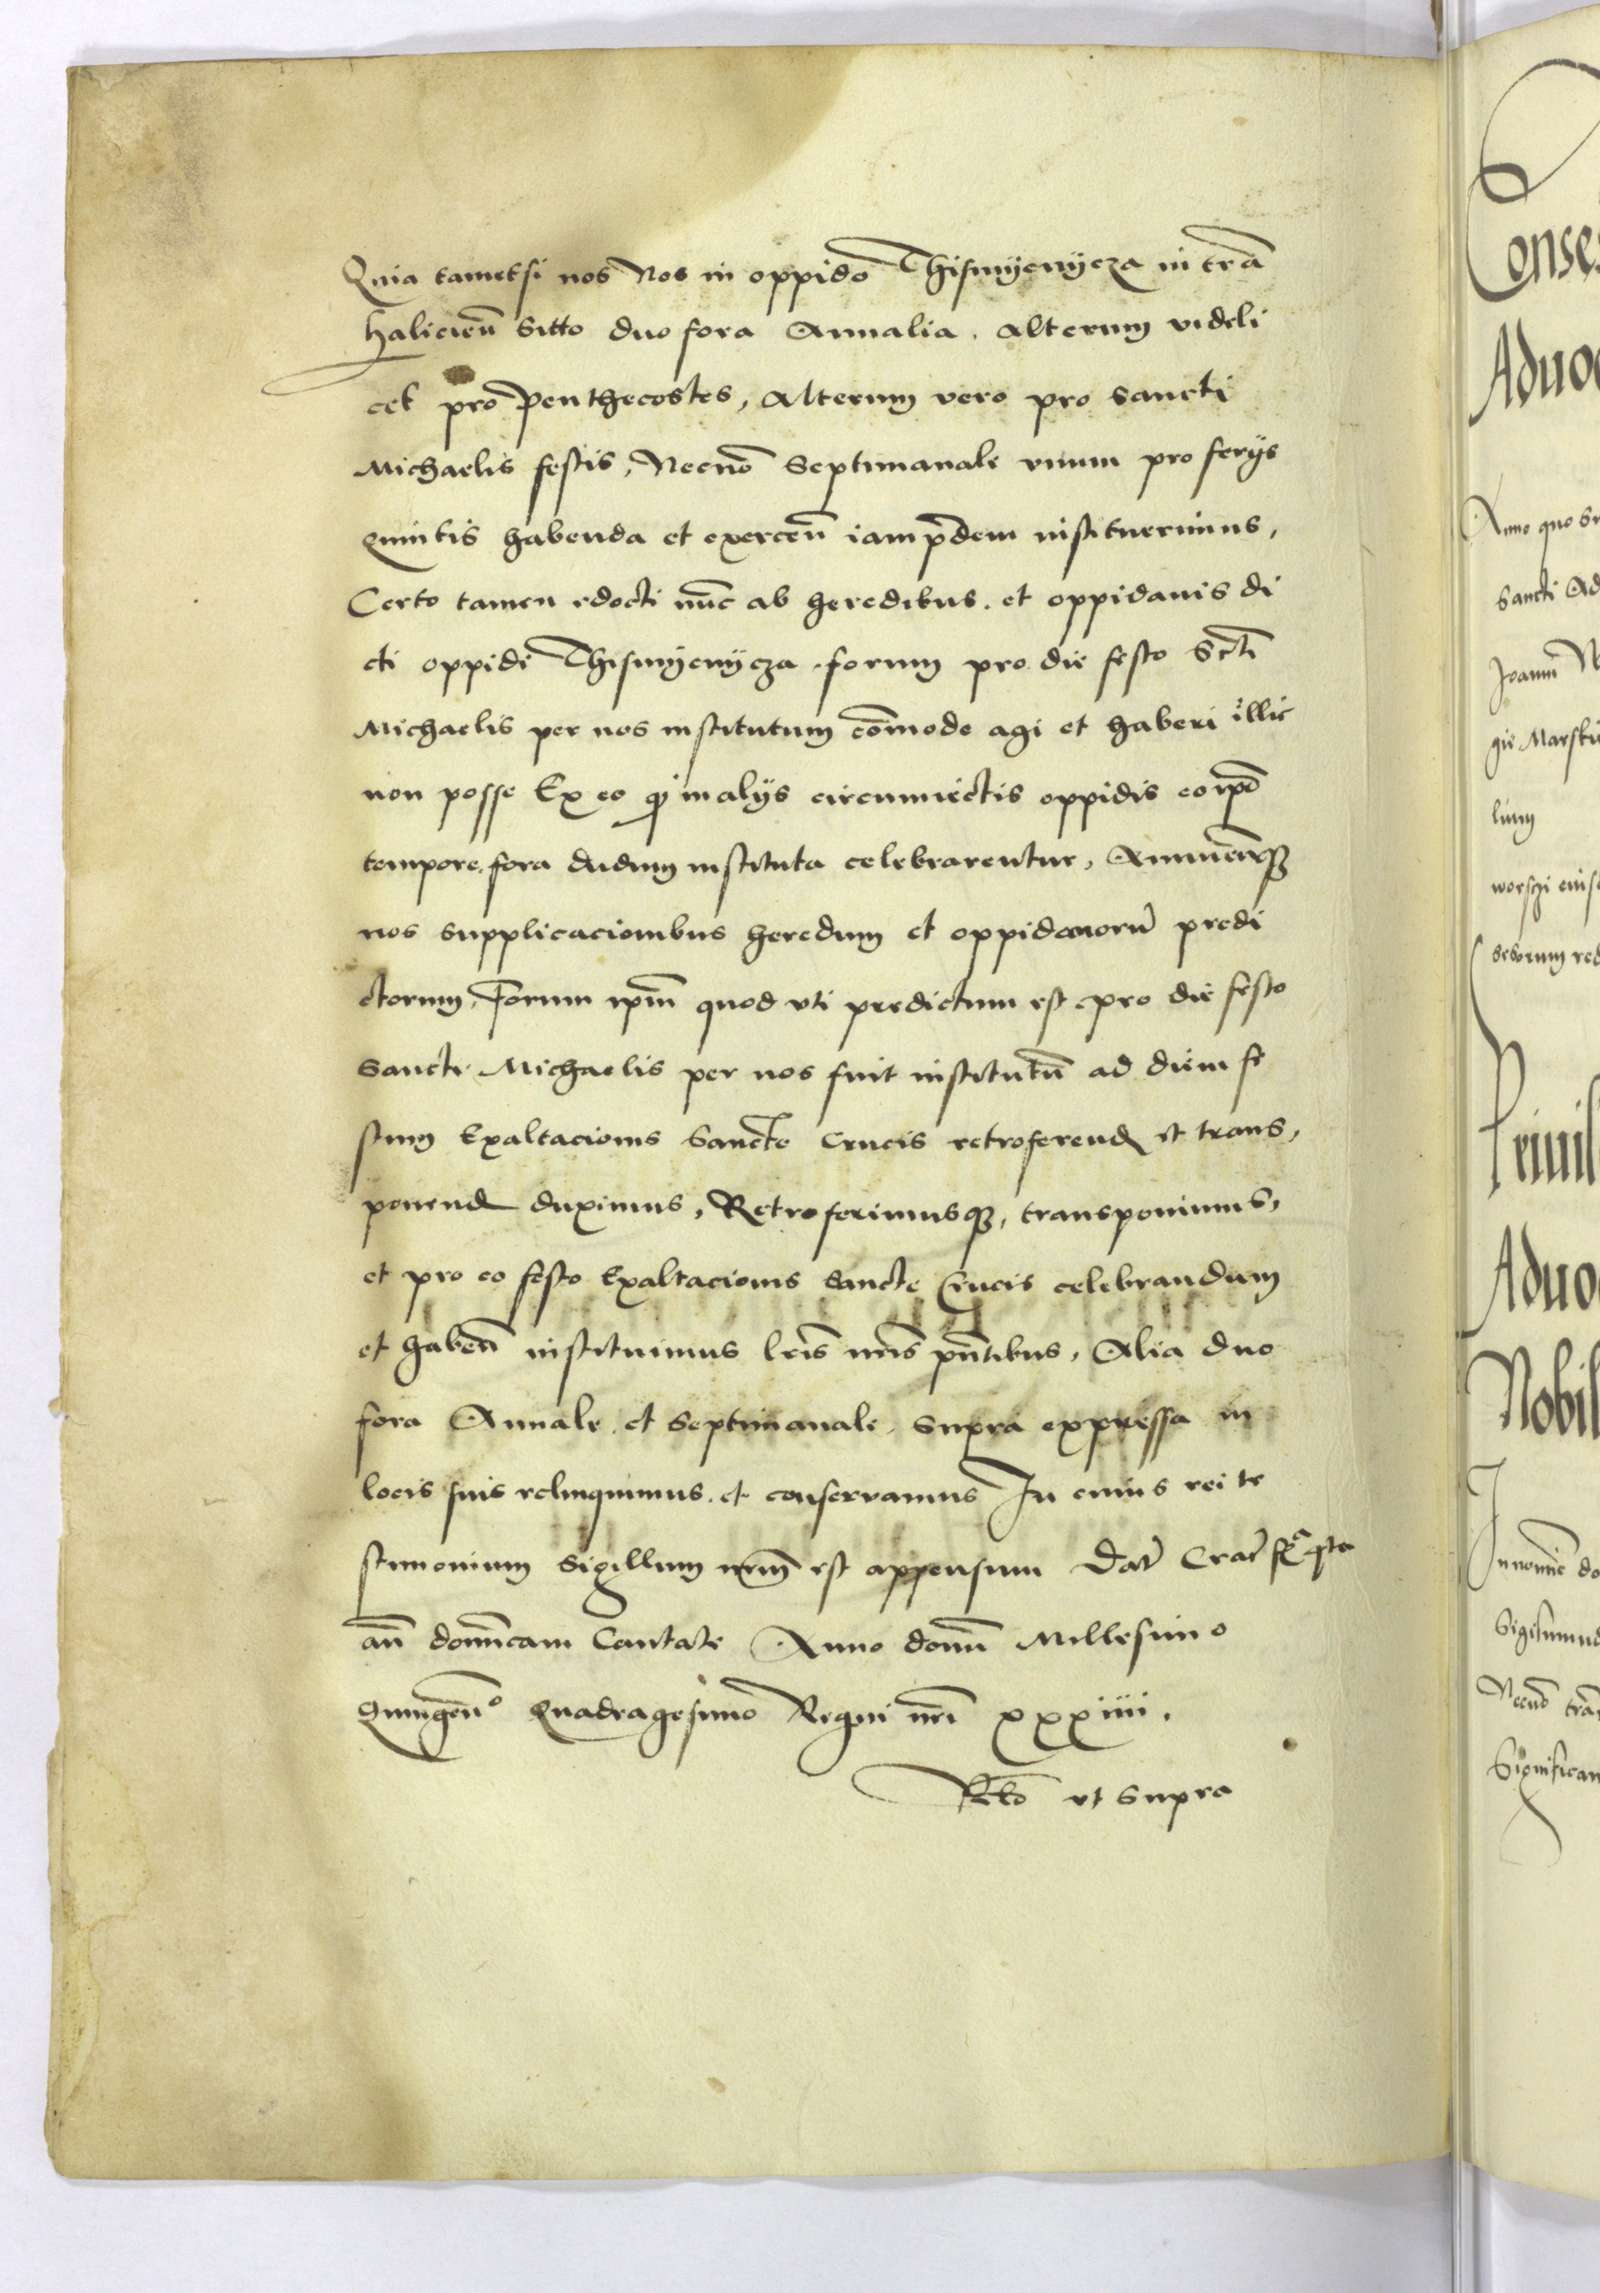 Quia tametsi nos Nos in oppido Thismyenycza in tr̃a
halicieñ Sitto duo fora Annalia. alterum videli
cet pro penthecostes, alterum vero pro sancti
Michaelis festis, Necnõ Septimanale vnum pro ferijs
quintis habenda et exerceñ iam p̃dem instituerimus,
Certo tamen edocti nũc ab heredibus. et oppidanis di
cti oppidi Thismyenycza. forum pro die festo Scti̅
Michaelis per nos institutum cõmode agi et haberi illic
non posse Ex eo ꝙ in alijs circumiectis oppidis eo ip̃o
tempore. fora dudum instituta celebrarentur, Annuẽtesqꝫ
nos supplicacionibus heredum et oppidanorũ predi
ctorum, Forum ip̃m quod vti predictum est pro die festo
Sancti Michaelis per nos fuit institutũ ad diem fe
stum Exaltacionis Sancte Crucis retroferend et trans,
ponend duximus, Retroferimusqꝫ, transponimus,
et pro eo festo Exaltacionis Sancte Crucis celebrandum
et habeñ instituimus lr̃is nr̃is pñtibus, Alia duo
fora Annale. et Septimanale, supra expressa in
locis suis relinquimus. et conservamus In cuius rei te
stimonium Sigillum nr̃m est appensum Dat̃ Crac̃ fr̃a qta
añ domĩcam Cantate Anno domĩ Millesimo
Quingeñ° Quadragesimo Regni nr̃i xxxiiii.
Rltõ vt supra
Conse
Aduo
Anno quo su
Sancti Ad
Joanñ N
gie Marsti
lum
worszi eius
sessorum red
Priuil
Aduo
Nobil
In nomie do
Sigismund
Necnõ tra
Significam